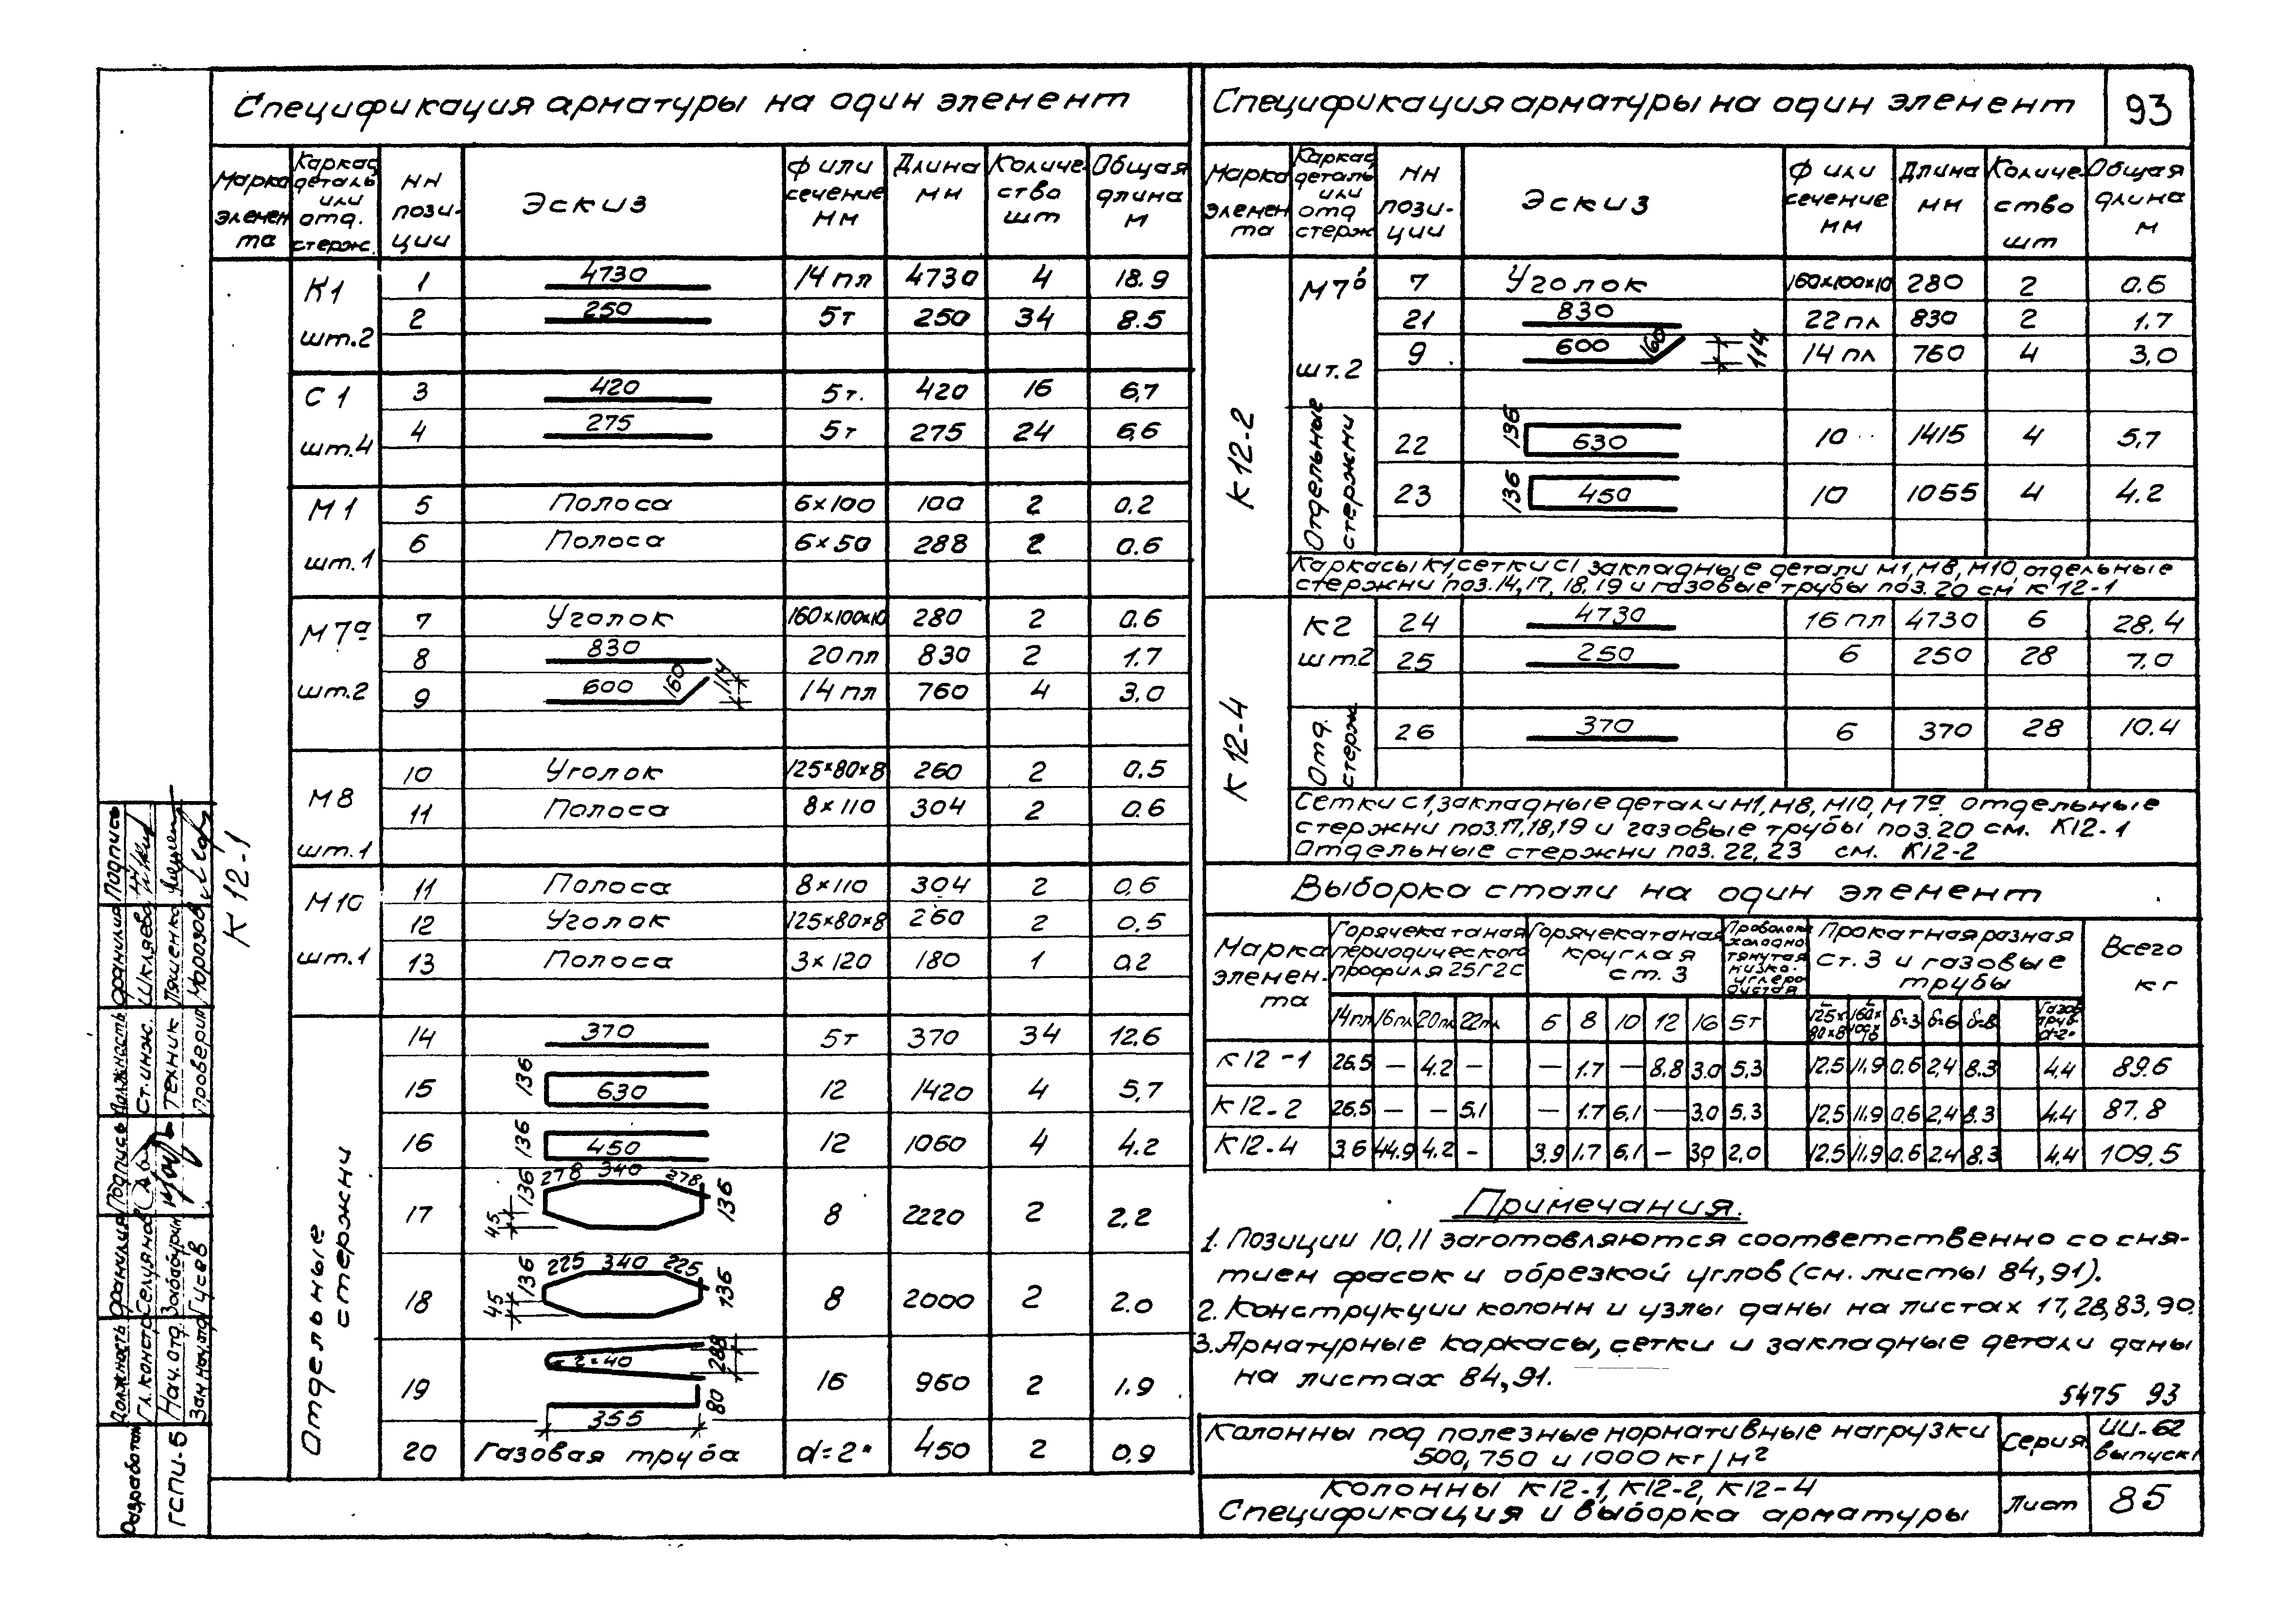 Спецификация арматуры на один элемент
Марка элемен та | Каркас, деталь или отд. стерж. | НН пози- ции | Эскиз | Ф или сечение мм | Длина мм | Количе- ство шт | Общая длина м
К 12-1
К1 шт.2
1 | 4730 | 14 пл | 4730 | 4 | 18.9
2 | 250 | 5т | 250 | 34 | 8.5
С 1 шт.4
3 | 420 | 5т. | 420 | 16 | 6,7
4 | 275 | 5т | 275 | 24 | 6,6
М1 шт.1
5 | Полоса | 6×100 | 100 | 2 | 0.2
6 | Полоса | 6×50 | 288 | 2 | 0.6
М7а шт.2
7 | Уголок | 160×100×10 | 280 | 2 | 0.6
8 | 830 | 20 пл | 830 | 2 | 1.7
9 | 600 160 114 | 14 пл | 760 | 4 | 3.0
М8 шт.1
10 | Уголок | 125×80×8 | 260 | 2 | 0.5
11 | Полоса | 8×110 | 304 | 2 | 0.6
М10 шт.1
11 | Полоса | 8×110 | 304 | 2 | 0.6
12 | Уголок | 125×80×8 | 260 | 2 | 0.5
13 | Полоса | 3×120 | 180 | 1 | 0.2
Отдельные стержни
14 | 370 | 5т | 370 | 34 | 12.6
15 | 136 630 | 12 | 1420 | 4 | 5,7
16 | 136 450 | 12 | 1060 | 4 | 4.2
17 | 45 136 278 340 278 136 | 8 | 2220 | 2 | 2.2
18 | 45 136 225 340 225 136 | 8 | 2000 | 2 | 2.0
19 | r=40 288 80 355 | 16 | 960 | 2 | 1.9
20 | Газовая труба | d=2" | 450 | 2 | 0,9
Спецификация арматуры на один элемент
93
Марка элемен та | Каркас, деталь или отд стерж | НН пози- ции | Эскиз | Ф или сечение мм | Длина мм | Количе- ство шт | Общая длина м
К 12-2
М7б шт.2
7 | Уголок | 160×100×10 | 280 | 2 | 0.6
21 | 830 | 22 пл | 830 | 2 | 1.7
9 | 600 160 114 | 14 пл | 760 | 4 | 3,0
Отдельные стержни
22 | 136 630 | 10 | 1415 | 4 | 5,7
23 | 136 450 | 10 | 1055 | 4 | 4.2
Каркасы К1, сетки С1 закладные детали М1, М8, М10, отдельные
стержни поз.14,17, 18, 19 и газовые трубы поз. 20 см К 12-1
К 12-4
К2 шт.2
24 | 4730 | 16 пл | 4730 | 6 | 28.4
25 | 250 | 6 | 250 | 28 | 7.0
Отд. стерж.
26 | 370 | 6 | 370 | 28 | 10.4
Сетки С1, закладные детали М1, М8, М10, М7а отдельные
стержни поз.17,18,19 и газовые трубы поз.20 см. К12-1
Отдельные стержни поз. 22, 23 см. К12-2
Выборка стали на один элемент
Марка элемен- та | Горячекатаная периодического профиля 25Г2С | Горячекатаная круглая ст. 3 | Проволока холодно тянутая низко- углеро дистая | Прокатная разная ст. 3 и газовые трубы | Всего кг
14пл | 16пл | 20пл | 22пл | 6 | 8 | 10 | 12 | 16 | 5т | L 125× 80×8 | L 160× 100× 10 | δ=3 | δ=6 | δ=8 | Газов труб. d=2"
К12-1 | 26.5 | — | 4.2 | — | — | 1.7 | — | 8.8 | 3.0 | 5,3 | 12.5 | 11.9 | 0.6 | 2,4 | 8.3 | 4,4 | 89.6
К12-2 | 26.5 | — | — | 5.1 | — | 1.7 | 6,1 | — | 3.0 | 5.3 | 12.5 | 11.9 | 0.6 | 2,4 | 8.3 | 4.4 | 87.8
К12-4 | 3.6 | 44.9 | 4.2 | - | 3,9 | 1.7 | 6,1 | — | 3,0 | 2,0 | 12.5 | 11.9 | 0.6 | 2.4 | 8.3 | 4,4 | 109.5
Примечания.
1. Позиции 10, 11 заготовляются соответственно со сня-
тием фасок и обрезкой углов (см. листы 84,91).
2. Конструкции колонн и узлы даны на листах 17,28,83,90.
3. Арматурные каркасы, сетки и закладные детали даны
на листах 84,91.
5475 93
Колонны под полезные нормативные нагрузки
500, 750 и 1000 кг/м²
Серия
ИИ-62
выпуск 1
Колонны К12-1, К12-2, К12-4
Спецификация и выборка арматуры
Лист
85
Разработан ГСПИ-5
Должность Фамилия Подпись
Гл. констр.
Нач. отд.
Зам нач отд Гусев
Должность Фамилия Подпись
Ст. инж. Шкляева
Техник Ляшенко
Проверил Морозов